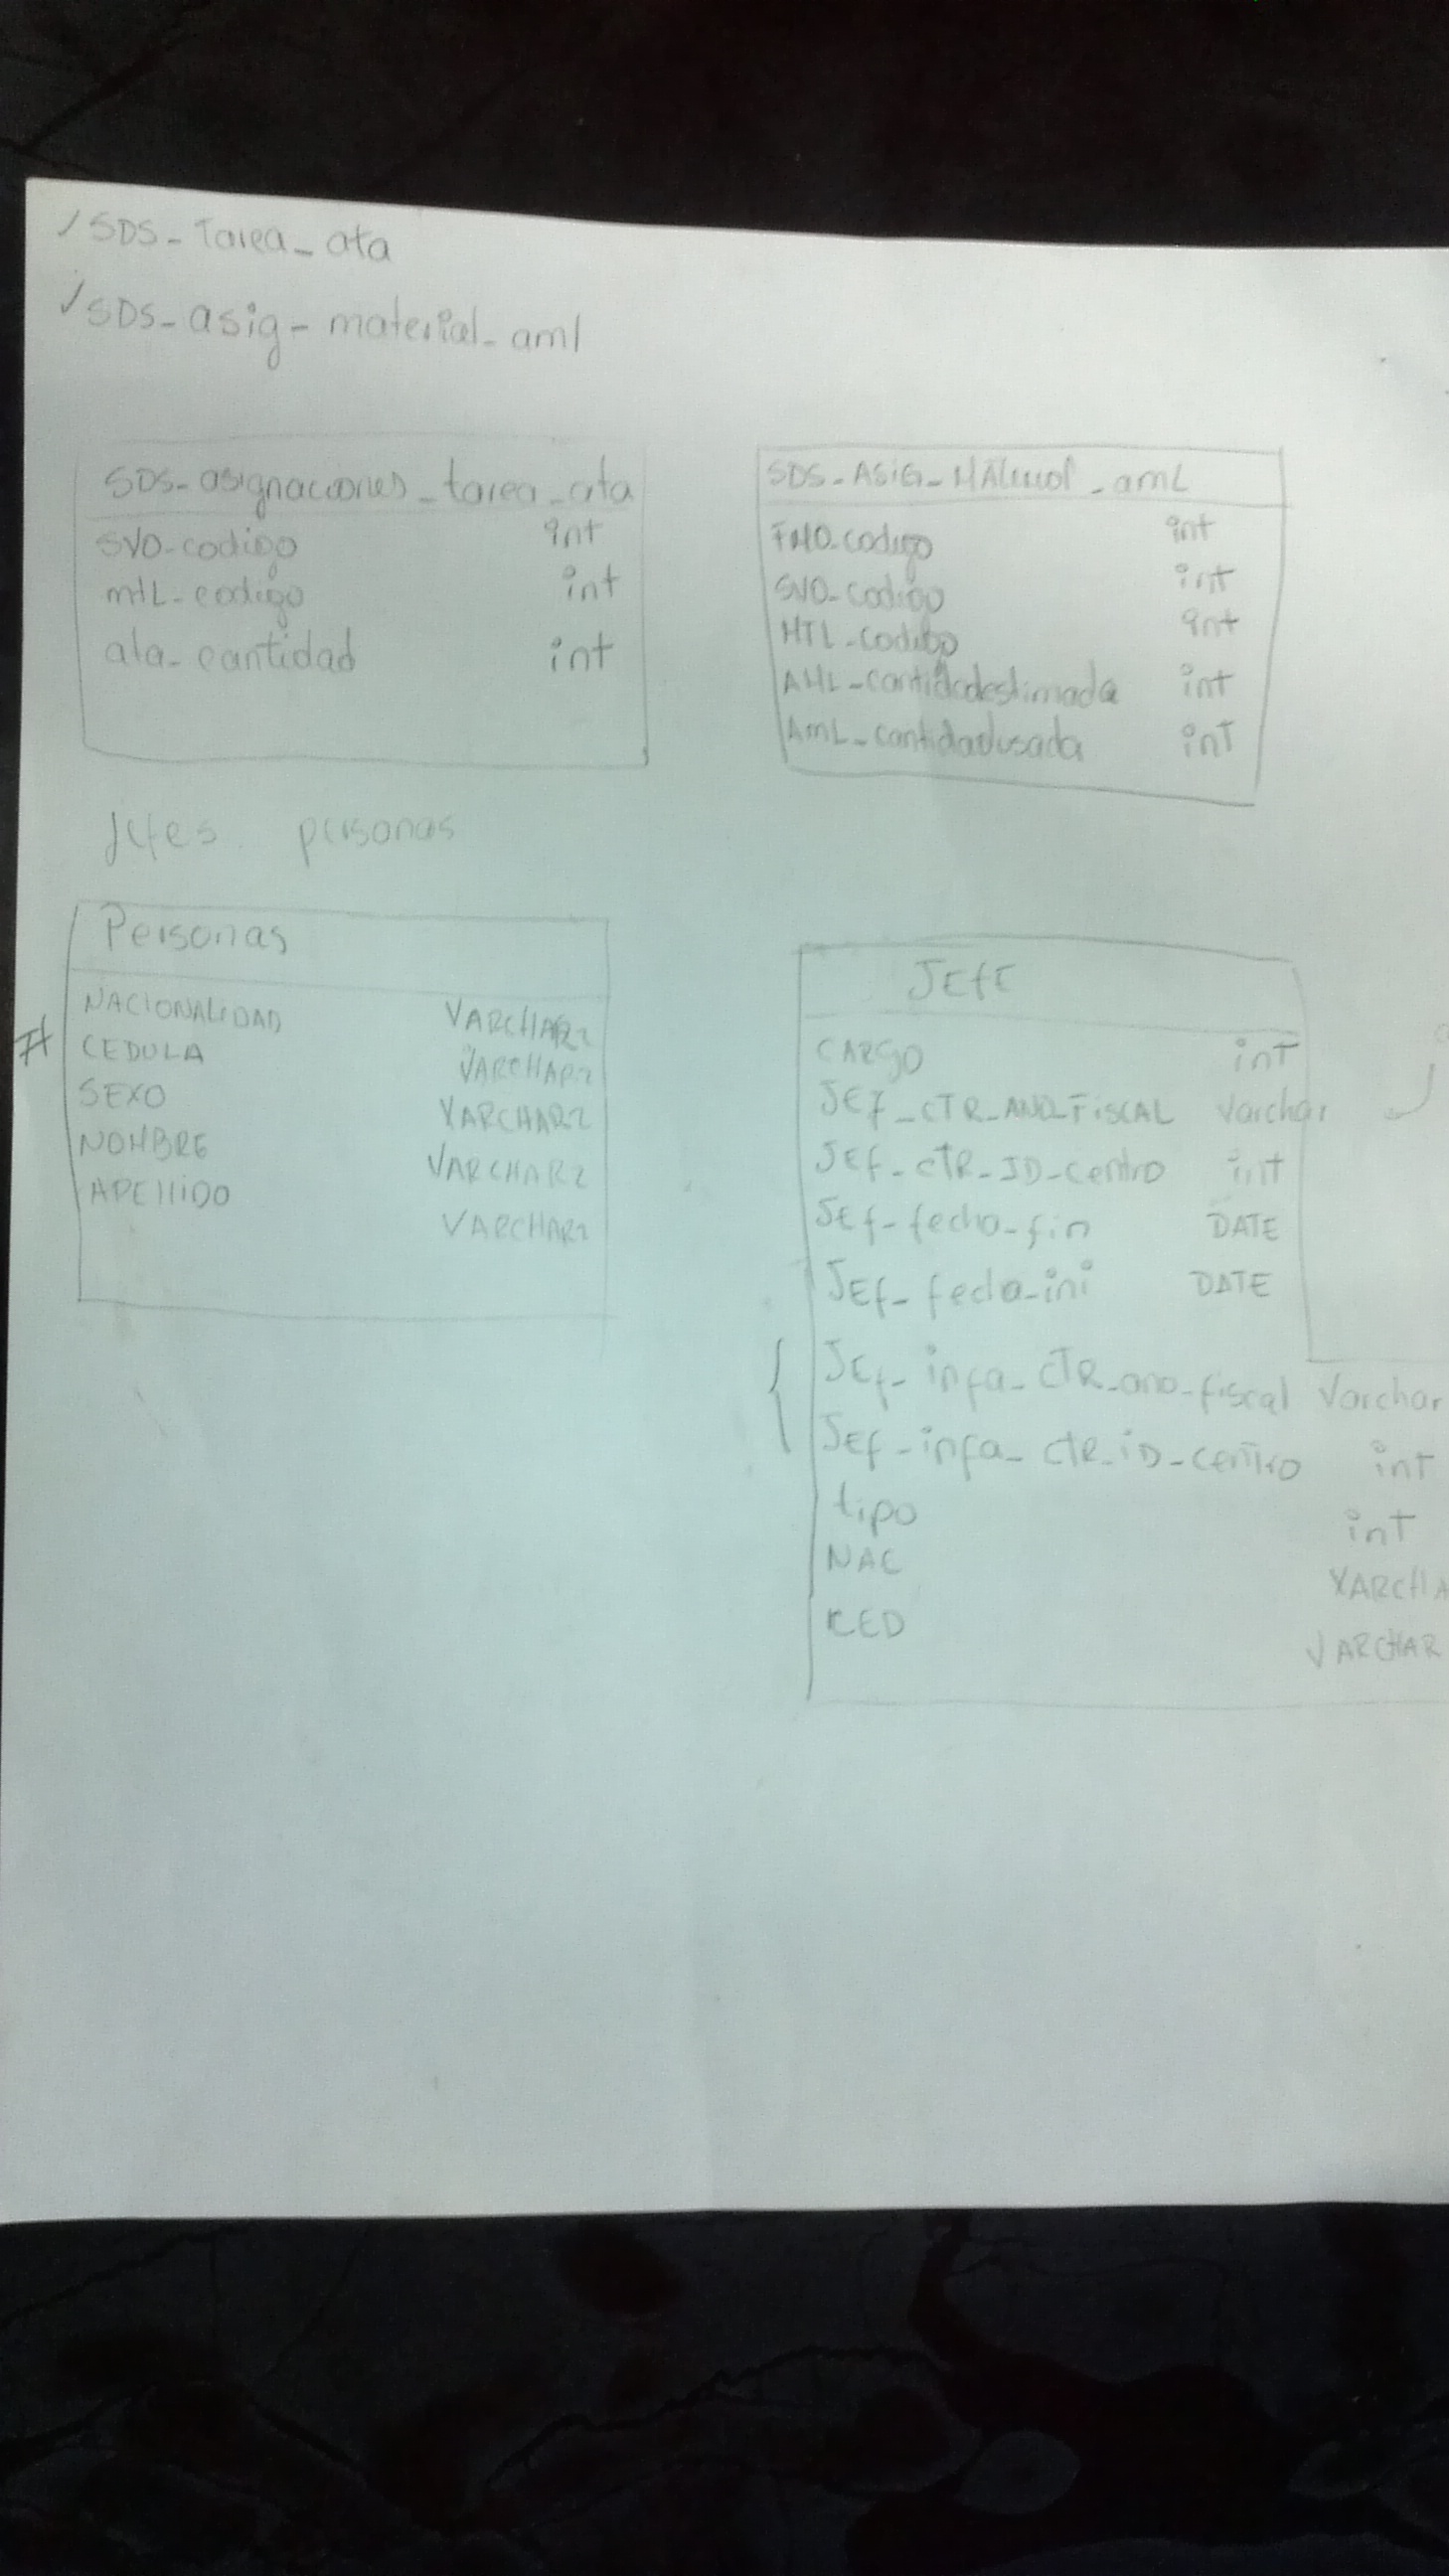 SDS_Tarea_ata
SDS_asig_material_aml
SDS_asignaciones_tarea_ata
SVO_codigo int
mtL_codigo int
ata_cantidad int
SDS_ASIG_MAterial_amL
TMO_codigo int
SVO_codigo int
MTL_codigo int
AML_cantidadestimada int
AmL_cantidadusada int
Jefes personas
Personas
NACIONALIDAD VARCHAR2
# CEDULA VARCHAR2
SEXO VARCHAR2
NOMBRE VARCHAR2
APEllIDO VARCHAR2
JEfE
CARGO int
JEf_CTR_ANO_FiSCAL Varchar
JEf_CTR_ID_centro int
JEf_fecha_fin DATE
JEf_fecha_ini DATE
JEf_infa_CTR_ano_fiscal Varchar
JEf_infa_CTR_iD_centro int
tipo int
NAC VARCHA
CED VARCHAR